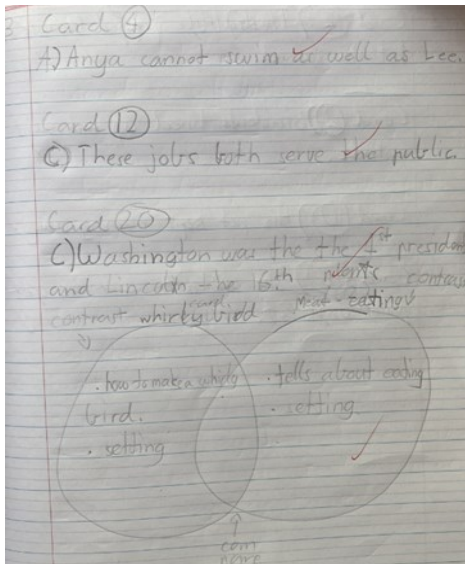 3 Card 4
A) Anya cannot swim as well as Lee.
Card 12
C) These jobs both serve the public.
Card 20
C) Washington was the the 1st president
and Lincoln the 16th contrast
contrast whirly bird Meat-eating
card
. how to make a whirly
bird.
. setting
. tells about eating
. setting
com
pare